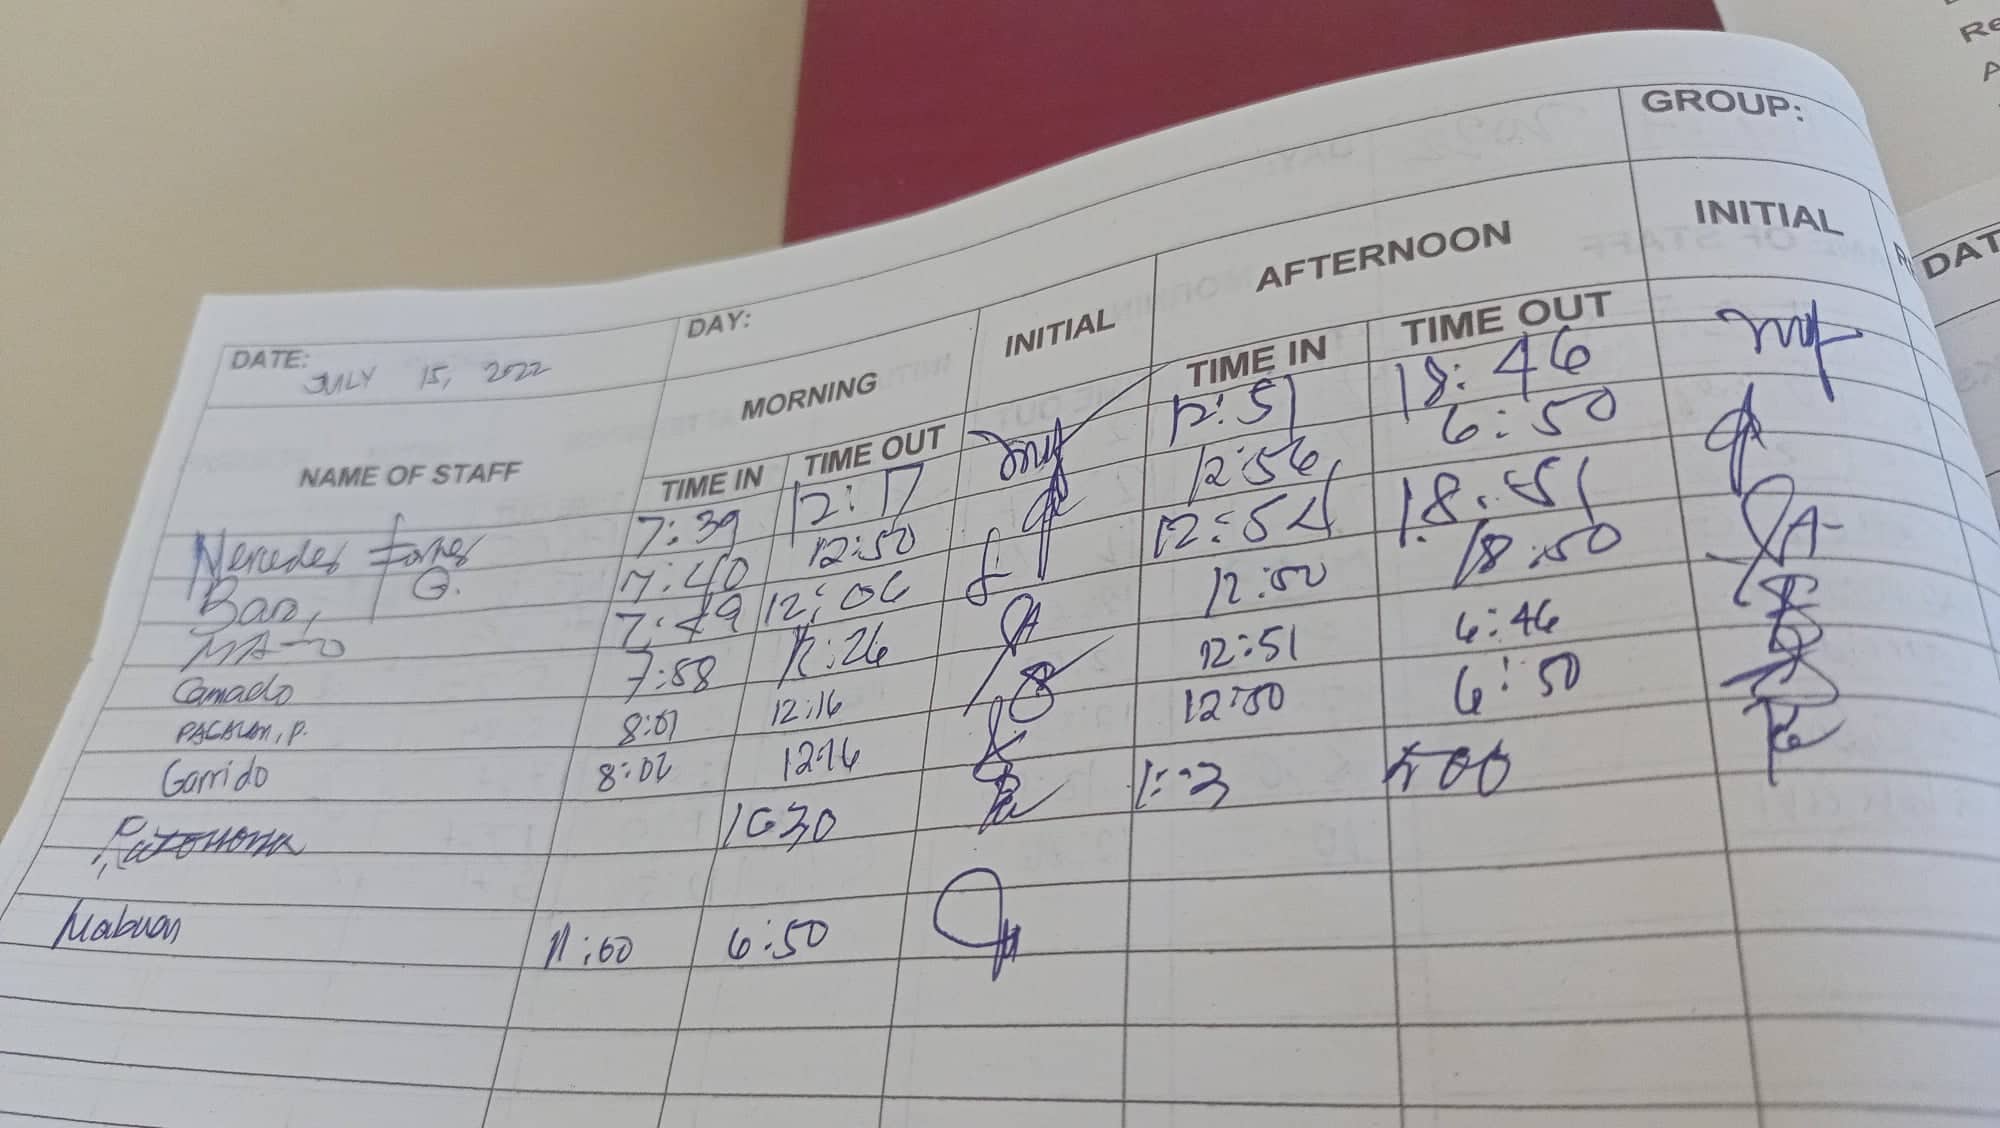 GROUP:
DATE: JULY 15, 2022 DAY:
NAME OF STAFF MORNING INITIAL AFTERNOON INITIAL
TIME IN TIME OUT TIME IN TIME OUT
Mercedes Torres 7:39 12:17 12:51 18:46
Bao, G. 7:40 12:50 12:56 6:50
7:49 12:06 12:54 18:51
Camado 7:58 12:26 12:50 18:50
PACALUN, P. 8:01 12:16 12:51 6:46
Garrido 8:02 12:16 12:50 6:50
1:3
Mabuan 11:00 6:50
DAT
Re
A